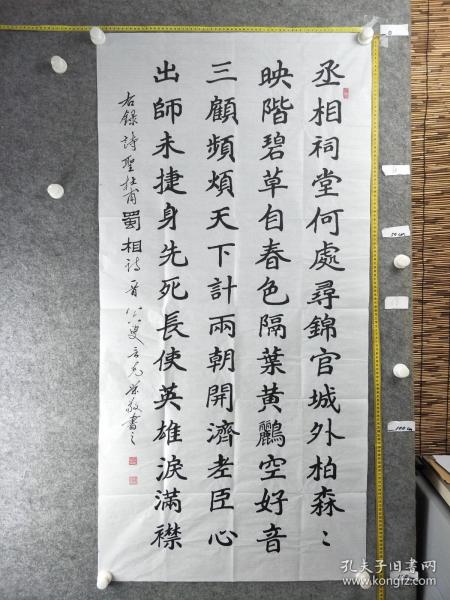 丞相祠堂何處尋錦官城外柏森〻
映階碧草自春色隔葉黃鸝空好音
三顧頻煩天下計兩朝開濟老臣心
出師未捷身先死長使英雄淚滿襟
右錄詩聖杜甫蜀相詩晉公叟言先榮敬書之
孔夫子旧书网
www.kongfz.com
50cm
100cm